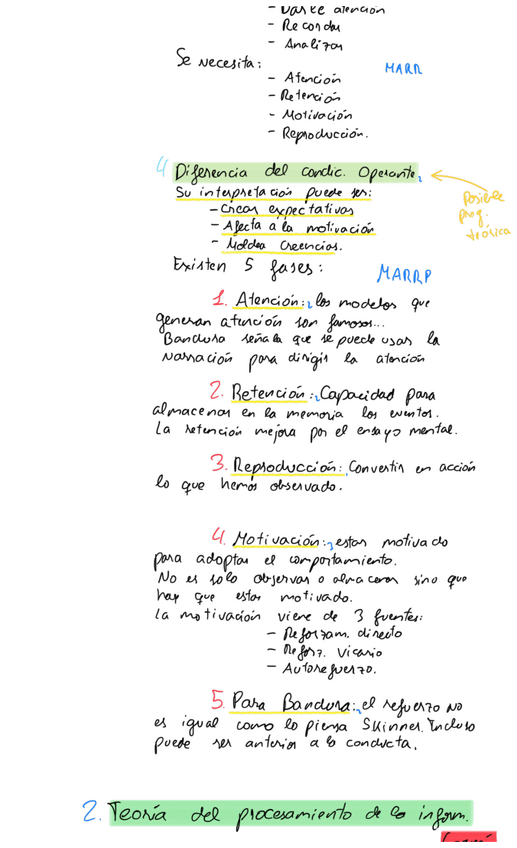 - Darse atención
- Recordar
- Analizar
Se necesita:
MARR
- Atención
- Retención
- Motivación
- Reproducción.
4 Diferencia del condic. Operante:
Su interpretación puede ser:
- Crear expectativas
- Afecta a la motivación
- Moldea creencias.
Posible
preg.
teórica
Existen 5 fases:
MARRP
1. Atención: los modelos que
generan atención son famosos...
Bandura señala que se puede usar la
narración para dirigir la atención
2. Retención: Capacidad para
almacenar en la memoria los eventos.
La retención mejora por el ensayo mental.
3. Reproducción: Convertir en acción
lo que hemos observado.
4. Motivación: estar motivado
para adoptar el comportamiento.
No es solo observar o almacenar sino que
hay que estar motivado.
La motivación viene de 3 fuentes:
- Reforzam. directo
- Reforz. Vicario
- Autorefuerzo.
5. Para Bandura: el refuerzo no
es igual como lo piensa Skinner. Incluso
puede ser anterior a la conducta.
2. Teoría del procesamiento de la inform.